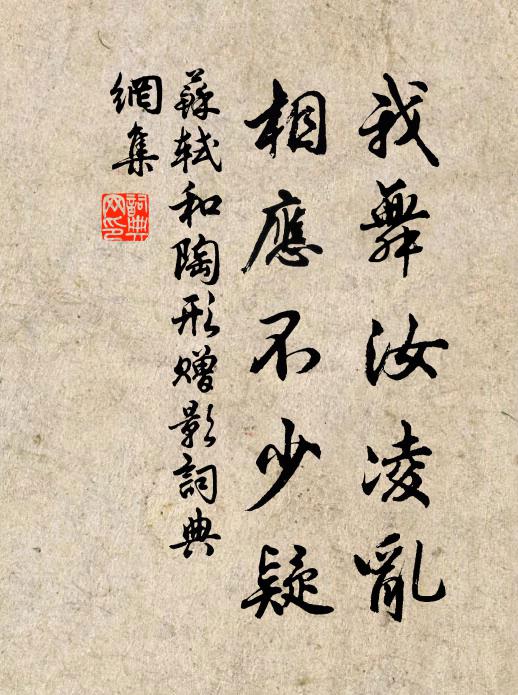 我舞汝凌亂
相應不少疑
蘇軾和陶形贈影詞典
網集
詞典
网印